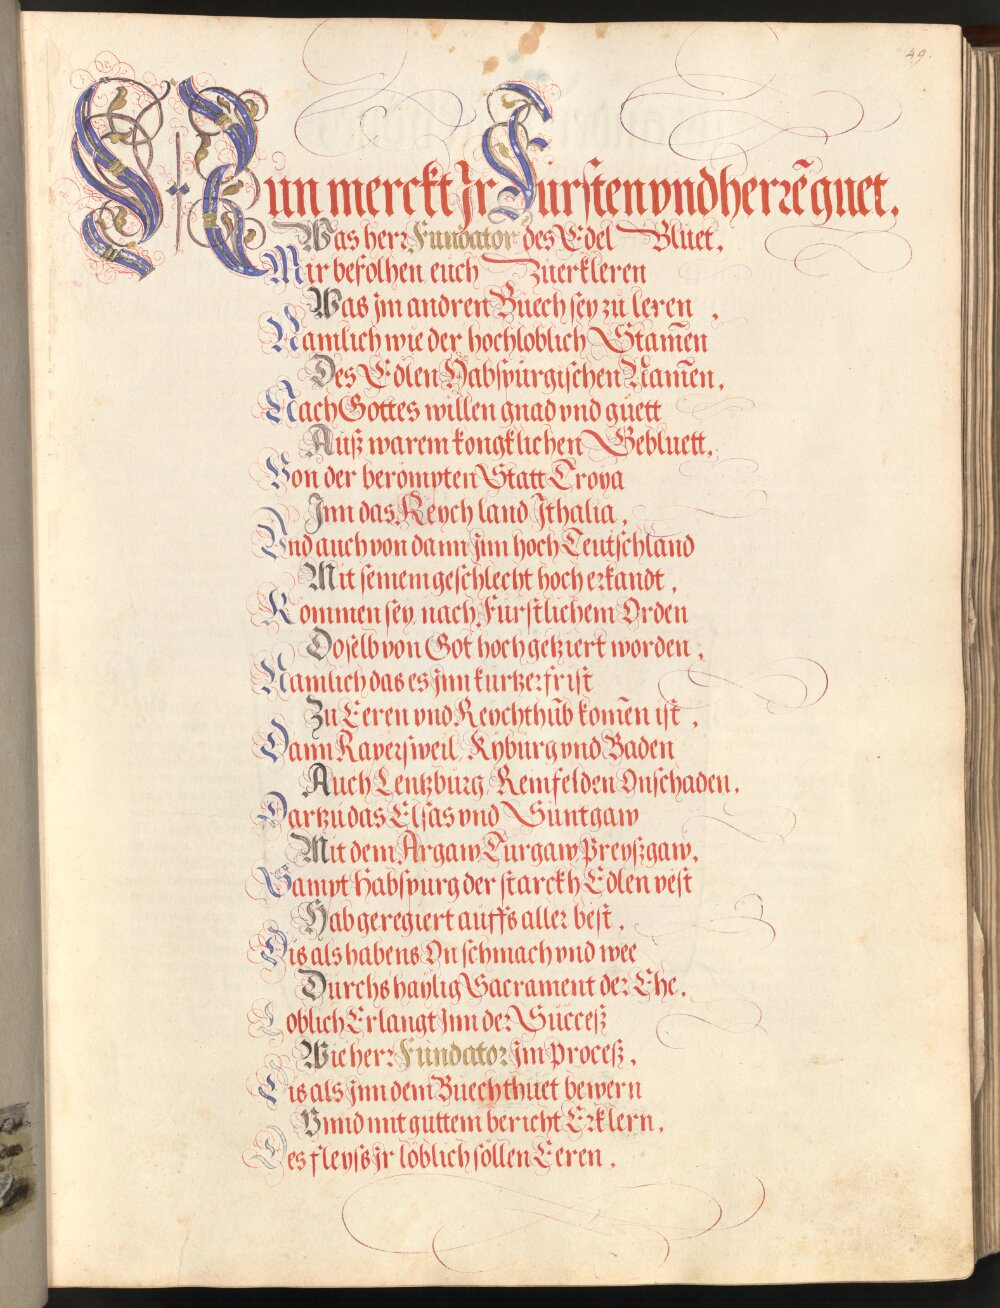 49.
Nun merckt Ir Fürsten vnd herrẽ guet,
Was herr Fundator des Edel Bluet,
Mir befolhen euch Zuerkleren
Was jm andren Buech sey zu leren,
Namlich wie der hochloblich Stam̃en
Des Edlen Habspurgischen Nam̃en,
Nach Gottes willen gnad vnd guett
Auß warem kongklichen Gebluett,
Von der berompten Statt Troya
Inn das Reych land Ithalia,
Vnd auch von dann jnn hoch Teutschland
Mit seinem geschlecht hoch erkandt,
Kommen sey nach Furstlichem Orden
Doselb von Got hoch getziert worden,
Namlich das es jnn kurtzer frist
Zu Eeren vnd Reychthub kom̃en ist,
Dann Rapersweil, Kyburg vnd Baden
Auch Lentzburg, Reinfelden Onschaden,
Dartzu das Elsas vnd Suntgaw
Mit dem Argaw Turgaw Preyßgaw,
Sampt Habspurg der starckh Edlen vest
Hab geregiert auffs aller best,
Dis als habens On schmach vnd wee
Durchs haylig Sacrament der Ehe,
Loblich Erlangt Jnn der Succeß
Wie herr Fundator jm proceß,
Dis als jnn dem Buech thuet bewern
Vnnd mit guttem bericht Erklern,
Des fleyss jr loblich sollen Eeren,